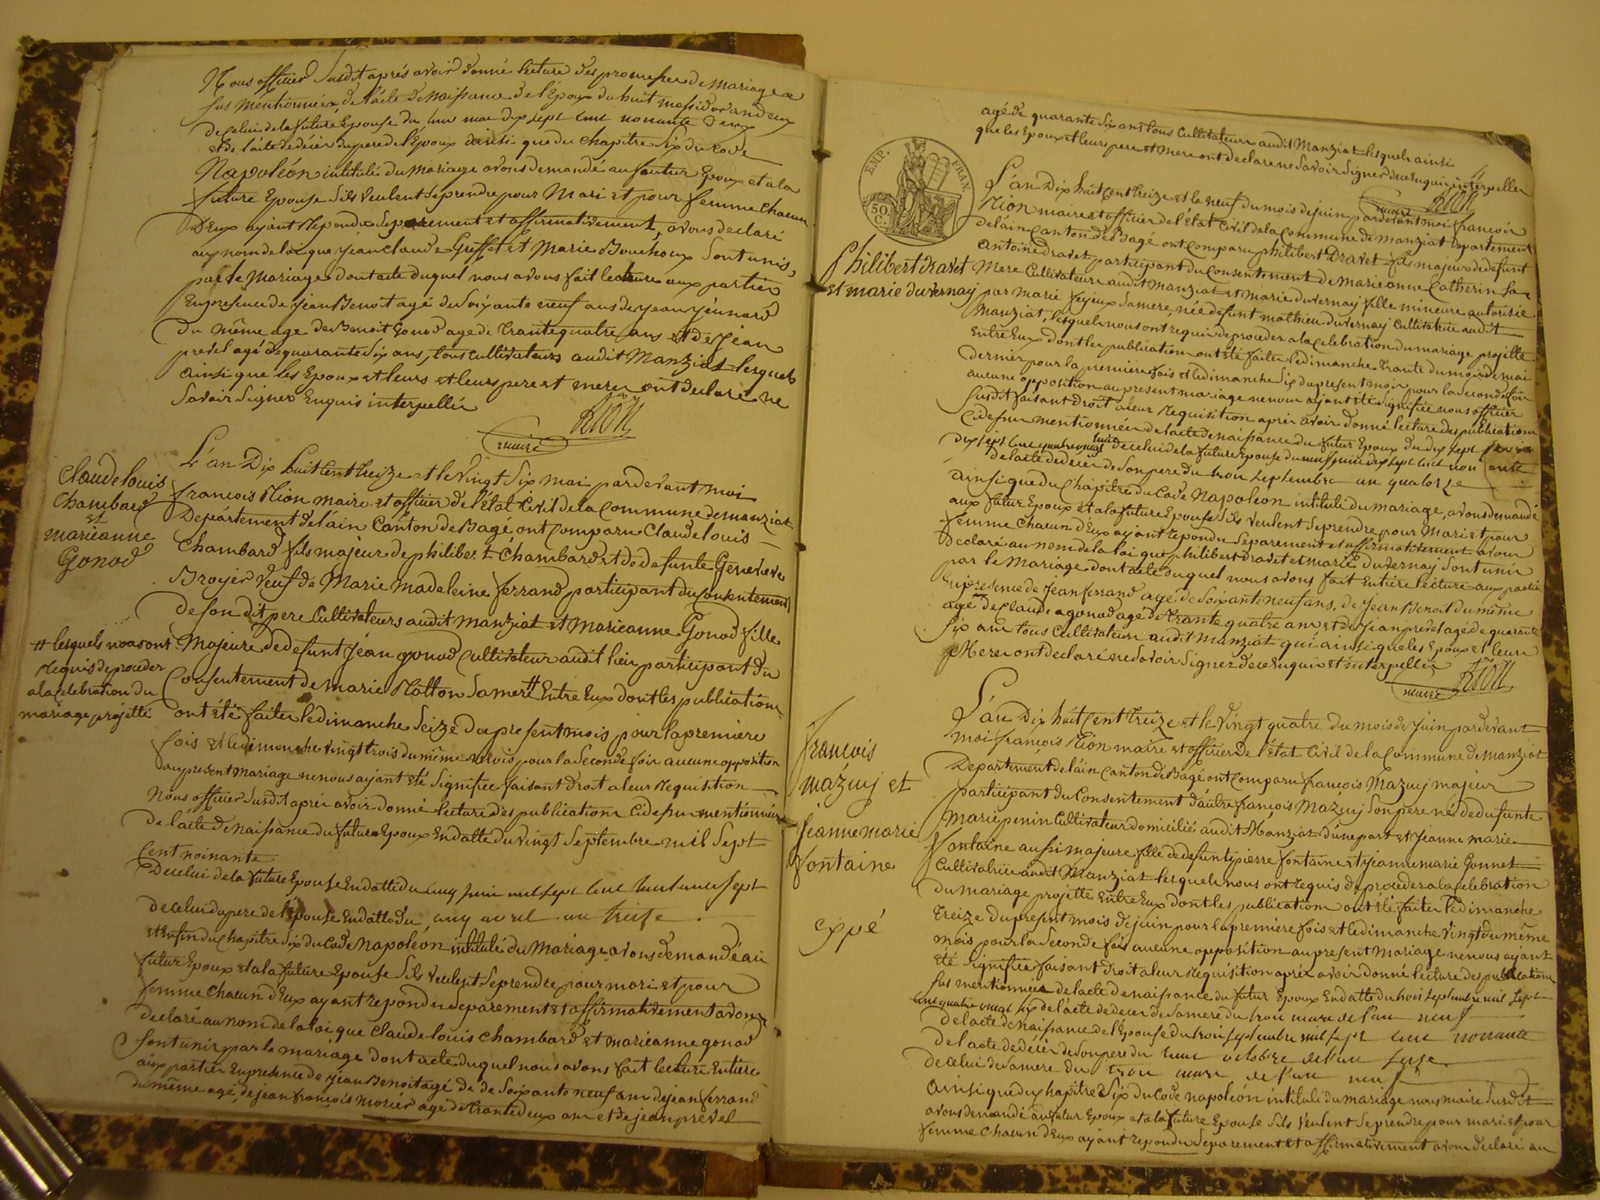 Nous officier susdit aprés avoir donné lecture des promesses de Mariage
sus mentionnées de l'acte de Naissance de l'Epoux du huit messidor an deux
de celui de la future Epouse du mai dix sept cent nonante deux
et de l'acte de décès du pere de l'Epoux ainsi que du Chapitre Six du Code
Napoléon intitulé du Mariage avons demandé au futur Epoux et a la
future Epouse s'ils veulent se prendre pour Mari et pour femme chacun
d'Eux ayant Répondu Separement et affirmativement, avons declaré
au nom de la loi que jean claude Guffet et Marie Bouchoux Sont unis
par le Mariage dont acte duquel nous avons fait lecture aux parties
En presence de jean Benoit agé de Soixante neuf ans de jean
du même age de Benoit Gonod agé de trante quatre ans et de jean
prevel agé de quarante Six ans, tous cultivateurs audit Manziat lesquels
ainsi que les Epoux et leurs et leurs pere et mere ont declaré ne
Savoir Signer Enquis interpellés
maire Rion
Claude louis
Chambard
et
marieanne
Gonod
L'an Dix huit cent treize et le vingt Six mai par devant moi
francois Rion maire et officier de l'Etat Civil de la Commune de manziat
Departement de l'ain Canton de Bagé ont Comparu Claude louis
Chambard fils majeur de philibert Chambard et de defunte Genevieve
Broyer veuf de Marie madeleine ferrand participant du Consentement
de son dit pere Cultivateurs audit manziat et Marieanne Gonod fille
Majeure de defunt jéan gonod Cultivateur audit lieu participant du
Consentement de marie Natton Sa mere # Entre Eux dont les publications
# lesquels nous ont
Requis de proceder
a la celebration du
mariage projetté
ont été faites le dimanche Seize du present mois pour la premiere
fois et le dimanche vingt trois du même mois pour la Seconde fois aucune opposition
au present mariage ne nous ayant eté Signifiée faisant droit a leur Requisition
Nous officier Susdit aprés avoir donné lecture des publications Cidessus mentionnées
de l'acte de Naissance du futur Epoux En datte du vingt Septembre mil Sept
Cent noinante
de celui de la future Epouse En datte du cinq juin mil sept cent huitante sept
de celui du pere de l'Epouse En datte du cinq avril an treize
et Enfin du Chapitre Six du Code Napoléon intitulé du Mariage avons demandé au
futur Epoux et a la future Epouse s'ils veulent Se prendre pour mari et pour
femme Chacun d'Eux ayant repondu Séparement et affirmativement avons
declaré au nom de la loi que Claude louis Chambard et marieanne gonod
Sont unis par le mariage dont acte duquel nous avons fait lecture Entiere
aux parties En presence de jean Benoit agé de de Soixante neuf ans de jean ferrand
du même agé, de jean francois Morier agé de trante deux ans et de jean prevel
agé de quarante Six ans tous Cultivateurs audit Manziat lesquels ainsi
que les Epoux et leurs pere et mere ont declaré ne Savoir Signer de ce Enquis interpellés
maire Rion
EMP. FRAN.
50 C.
Philibert dravet
et marie duvernay
L'an Dix huit Cent treize et le neuf du mois de juin par devant moi francois
Rion maire et officier de l'Etat Civil de la Commune de Manziat departement
de l'ain Canton de Bagé ont Comparu philibert Dravet fils majeur de defunt
antoine dravet participant du Consentement de Marieanne Catherin Sa
Mere Cultivateurs audit manziat et Marie duvernay fille mineure autorisée
par marie féjeux Sa mere, née de defunt mathieu duvernay Cultivateur audit
manziat, lesquels nous ont requis de proceder a la Celebration du mariage projetté
Entre Eux dont les publications ont été faites le dimanche trante du mois de mai
dernier pour la premiere fois et le dimanche Six du present mois pour la Seconde fois
aucune opposition au present mariage ne nous ayant été signifiée nous officier
Susdit faisant droit a leur Requisition aprés avoir donné lecture des publications
Cidessus mentionnées de l'acte de naissance du futur Epoux du dix sept
dix sept cent quatre vingt huit de celui de la future Epouse du neuf juin dix sept cent nonante
de l'acte de décès de son pere du trois Septembre an quatorze
ainsi que du Chapitre du Code Napoleon intitulé du mariage, avons demandé
aux futur Epoux et a la future Epouse s'ils veulent Se prendre pour Mari et pour
femme Chacun d'Eux ayant repondu Séparement et affirmativement avons
Declaré au nom de la loi que philibert dravet et marie duvernay Sont unis
par le Mariage dont acte duquel nous avons fait Entiere lecture aux parties
En presence de jean ferrand agé de Soixante neuf ans, de jean Benoit du même
age de Claude gonod agé de trante quatre ans et de jean prevel agé de quarante
Six ans tous Cultivateurs audit Manziat qui ainsi que les Epoux et leurs
Mere ont declaré ne Savoir Signer de ce Enquis et interpellés
maire Rion
francois
mazuy et
jeanne marie
fontaine
expé
L'an Dix huit Cent treize et le vingt quatre du mois de juin par devant
moi francois Rion maire et officier de l'Etat Civil de la Commune de Manziat
Departement de l'ain Canton de Bagé ont Comparu francois Mazuy majeur
participant du Consentement d'autre francois Mazuy Son pere né de defunte
Marie penin Cultivateur domicilié audit Manziat d'une part et jeanne marie
fontaine aussi majeure fille de defunts pierre fontaine et jeanne marie Gonnet
Cultivatrice audit Manziat lesquels nous ont requis de proceder a la Celebration
du mariage projetté Entre Eux dont les publications ont été faites le dimanche
treize du present mois de juin pour la premiere fois et le dimanche vingt du même
mois pour la Seconde fois aucune opposition au present Mariage ne nous ayant
été Signifiée faisant droit a leur requisition aprés avoir donné lecture des publications
sus mentionnées de l'acte de naissance du futur Epoux En datte du trois Septembre mil Sept
cent quatre vingt six de l'acte de deces de Sa mere du trois mars de l'an neuf
de l'acte de Naissance de l'Epouse du trois Septembre mil sept cent nonante
de l'acte de décés de Son pere du octobre de l'an
de celui de Sa mere du trois mars de l'an neuf
ainsi que du Chapitre Six du Code napoléon intitulé du mariage nous maire Susdit
avons demandé au futur Epoux et a la future Epouse s'ils veulent Se prendre pour mari et pour
femme Chacun d'Eux ayant repondu Separement et affirmativement avons declaré au